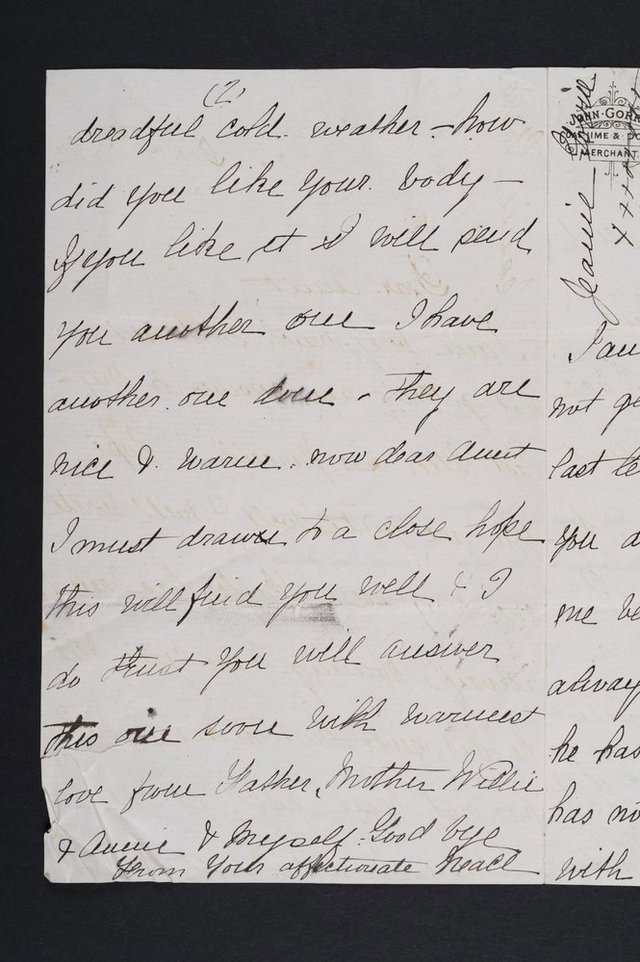 (2)
dreadful cold. weather - how
did you like your. body -
If you like it I will send
you another one I have
another. one done - they are
nice & warm. now dear Aunt
I must drawn to a close hope
this will find you well & I
do trust you will answer
this one soon with warmest
love from Father, Mother Willie
& Annie & Myself. Good bye
From Your affectionate
Jeanie
JOHN GORR
MERCHANT
I am
not ge
last le
you a
me be
alway
he has
has no
with